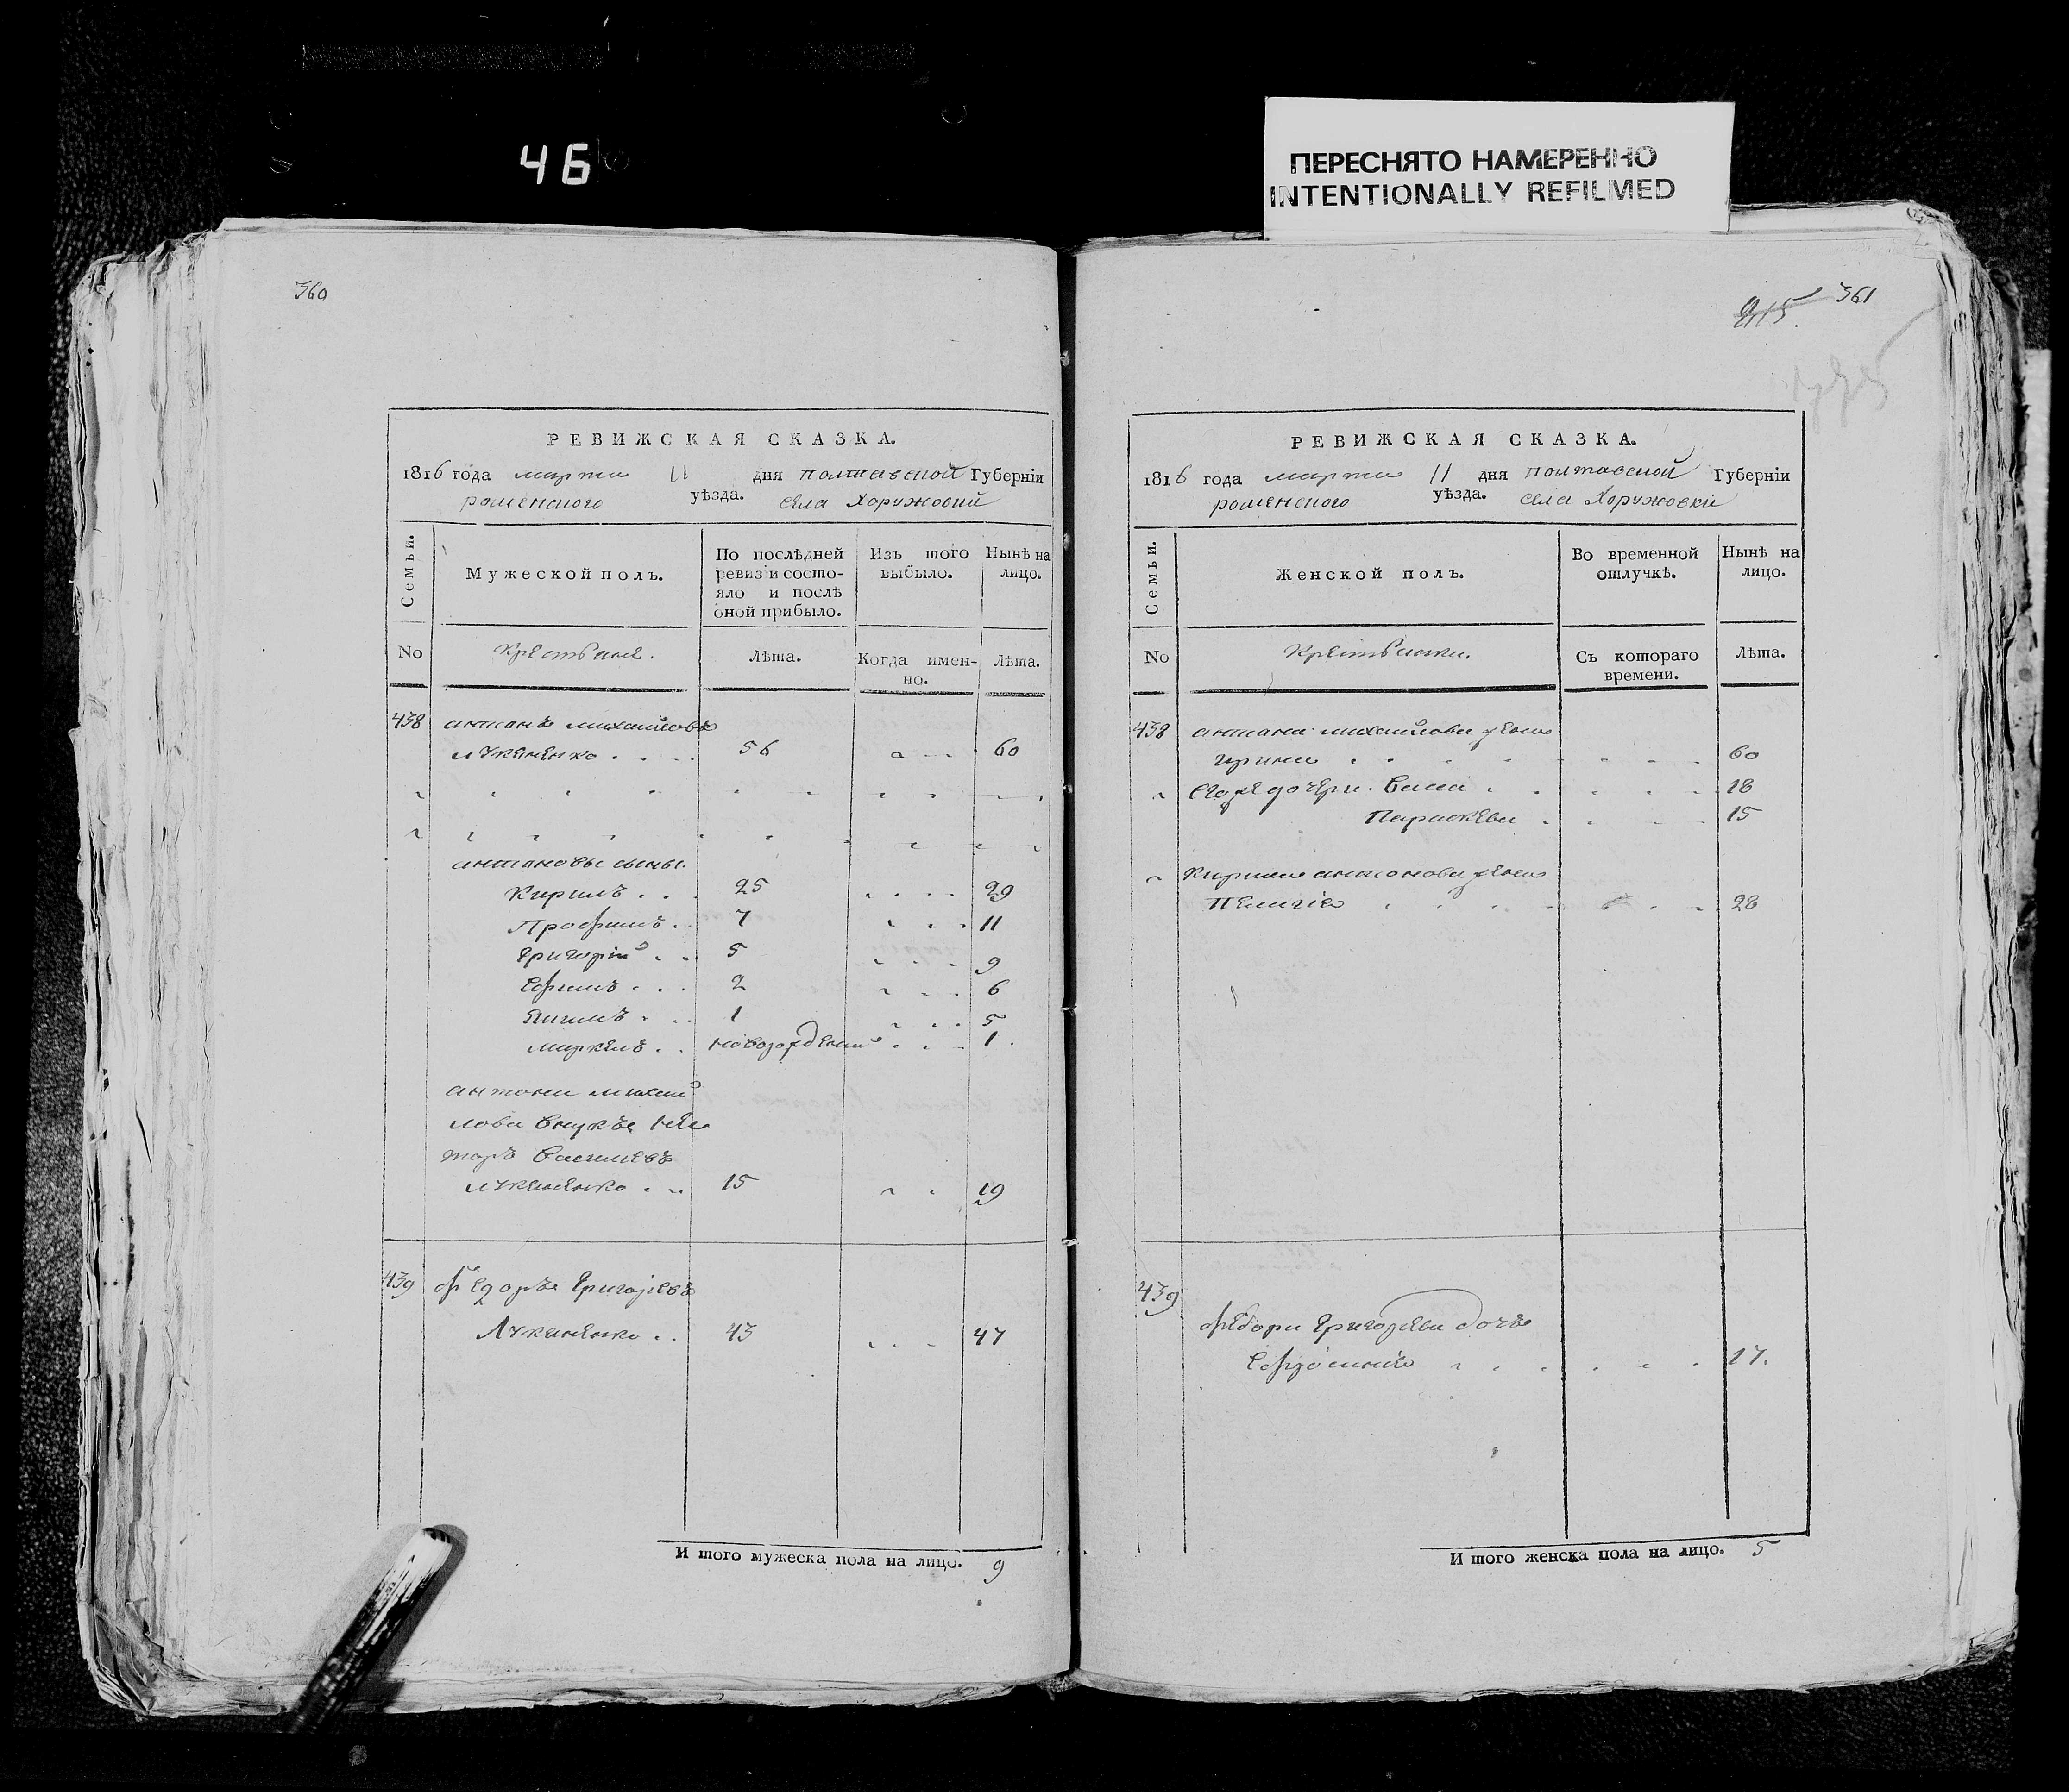 46
ПЕРЕСНЯТО НАМЕРЕННО
INTENTIONALLY REFILMED
360
РЕВИЖСКАЯ СКАЗКА.
1816 года марта 11 дня полтавской Губерніи
роменского уѣзда. села Хоружовки
Семьи.
Мужеской полъ.
По послѣдней ревизіи состояло и послѣ оной прибыло.
Изъ того выбыло.
Нынѣ на лицо.
No
Крестьяне.
Лѣта.
Когда имен-но.
Лѣта.
438 антонъ михайловъ
лукяненко 56 60
антоновы сыны.
Кирилъ 25 29
Трофимъ 7 11
Григорій 5 9
Ефимъ 2 6
1 5
маркелъ новорожденный 1
антона михай
лова внукъ Не
торъ Василіевъ
лукяненко 15 19
439 федоръ Григоріевъ
Лукяненко 43 47
И того мужеска пола на лицо. 9
215. 361
РЕВИЖСКАЯ СКАЗКА.
1816 года марта 11 дня полтавской Губерніи
роменского уѣзда. села Хоружовки
Семьи.
Женской полъ.
Во временной отлучкѣ.
Нынѣ на лицо.
No
Крестьянки.
Съ котораго времени.
Лѣта.
438 антона михайлова жена
ирина 60
его же дочери 18
Параскева 15
Кирила антонова жена
Пелагія 28
439
федора Григорьева дочь
Ефросинія 17.
И того женска пола на лицо. 5